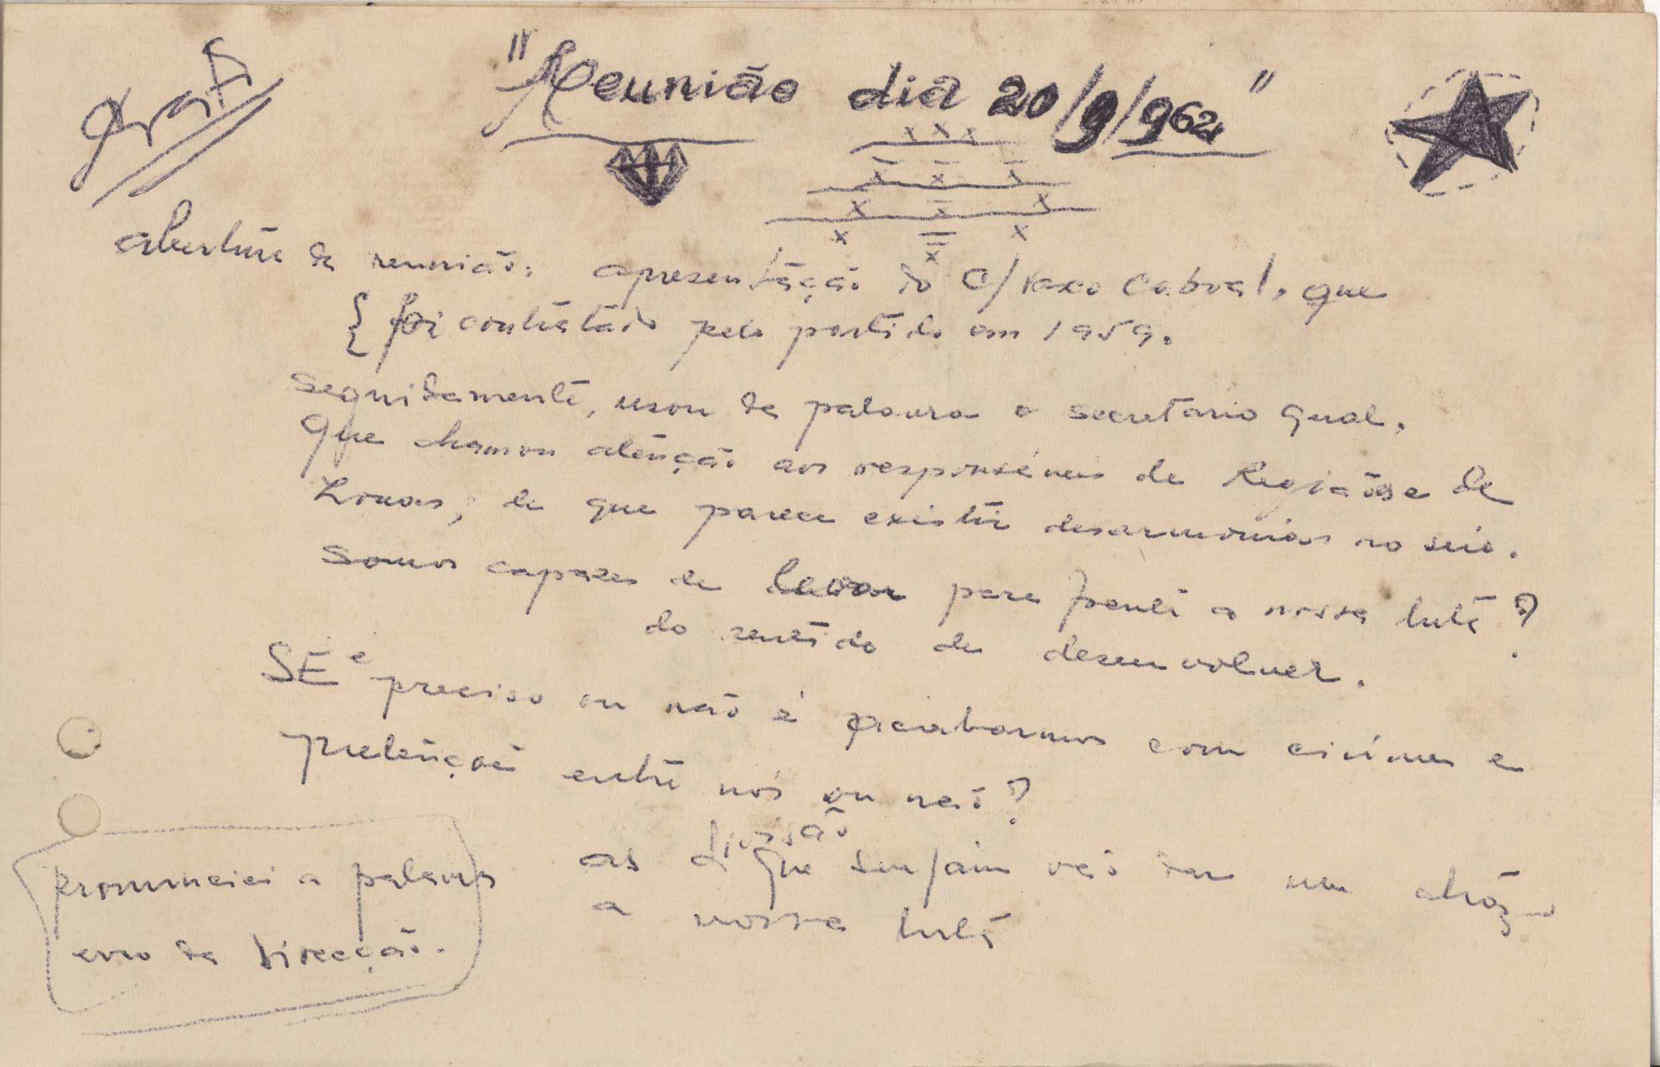 "Reunião dia 20/9/962"
abertura da reunião: apresentação do C/ Vaxo Cabral, que
{ foi contatado pelo partido em 1959.
Seguidamente, usou da palavra o secretario geral,
que chamou atenção aos responsáveis de Regiões e de
Zonas, de que parece existir desarmonias no seio.
Somos capazes de levar para frente a nossa luta?
do sentido de desenvolver.
SE é preciso ou não é acabarmos com ciúmes e
pretenções entre nós ou não?
divisão
as que surjam vão dar um atrazo
a nossa luta
pronunciei a palavra
erro da Direcção.